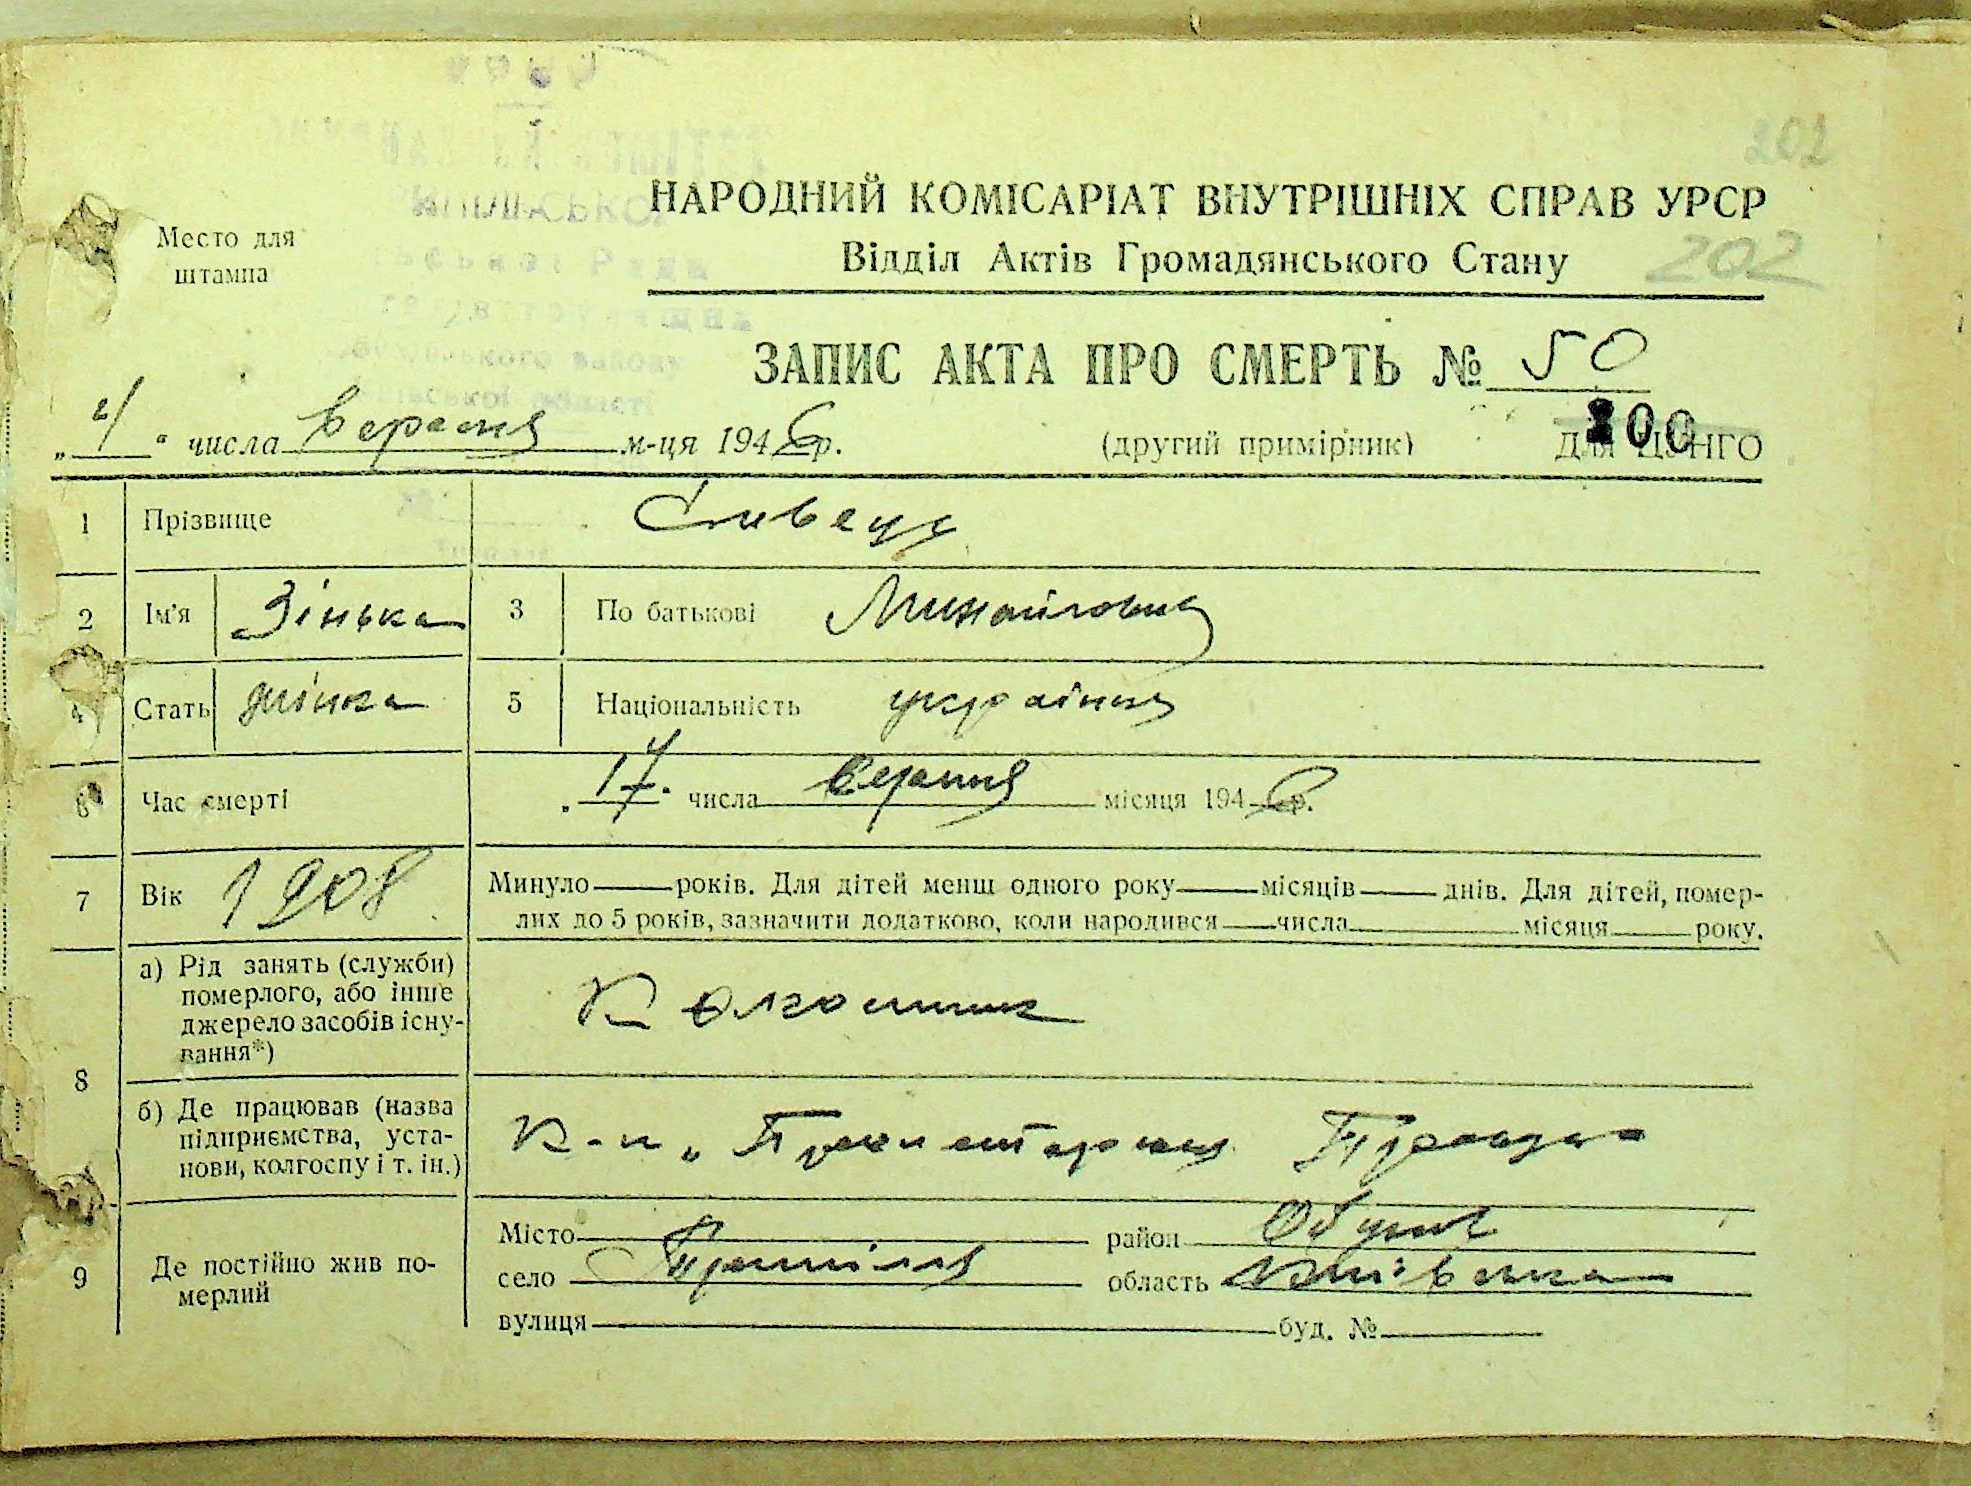 202
НАРОДНИЙ КОМІСАРІАТ ВНУТРІШНІХ СПРАВ УРСР
Место для штампа
Відділ Актів Громадянського Стану 202
ЗАПИС АКТА ПРО СМЕРТЬ № 50
„ 4 “ числа Вересня м-ця 1946 р. (другий примірник) ДЛЯ ЦУНГО
1 Прізвище Сивець
2 Ім'я Зінька 3 По батькові Михайловна
4 Стать жінка 5 Національність українка
6 Час смерті числа Вересня місяця 1946 р.
7 Вік 1908 Минуло років. Для дітей менш одного року місяців днів. Для дітей, помер-
лих до 5 років, зазначити додатково, коли народився числа місяця року.
8 а) Рій занять (служби)
померлого, або інше
джерело засобів існу-
вання*)
Колгоспник
б) Де працював (назва
підприємства, уста-
нови, колгоспу і т. ін.)
К-п „Пролетарська Правда
9 Де постійно жив по-
мерлий
Місто район Обухів
село область Київська
вулиця буд. №